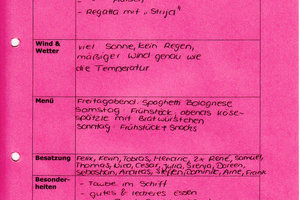 - Regatta mit "Strija"
Wind & Wetter
viel Sonne, kein Regen,
mäßiger Wind genau wie
die Temperatur
Menü
Freitagabend: Spaghetti Bolognese
Samstag: Frühstück, abends Käse-
spätzle mit Bratwürstchen
Sonntag: Frühstück + Snacks
Besatzung
Felix, Kevin, Tobias, Hendric, 2x René, Samuel,
Thomas, Vico, Cesar, Julia, Svenja, Doreen,
Sebastian, Andreas, Steffen, Dominik, Arne, Frank
Besonder-
heiten
- Taube im Schiff
- gutes & leckeres Essen